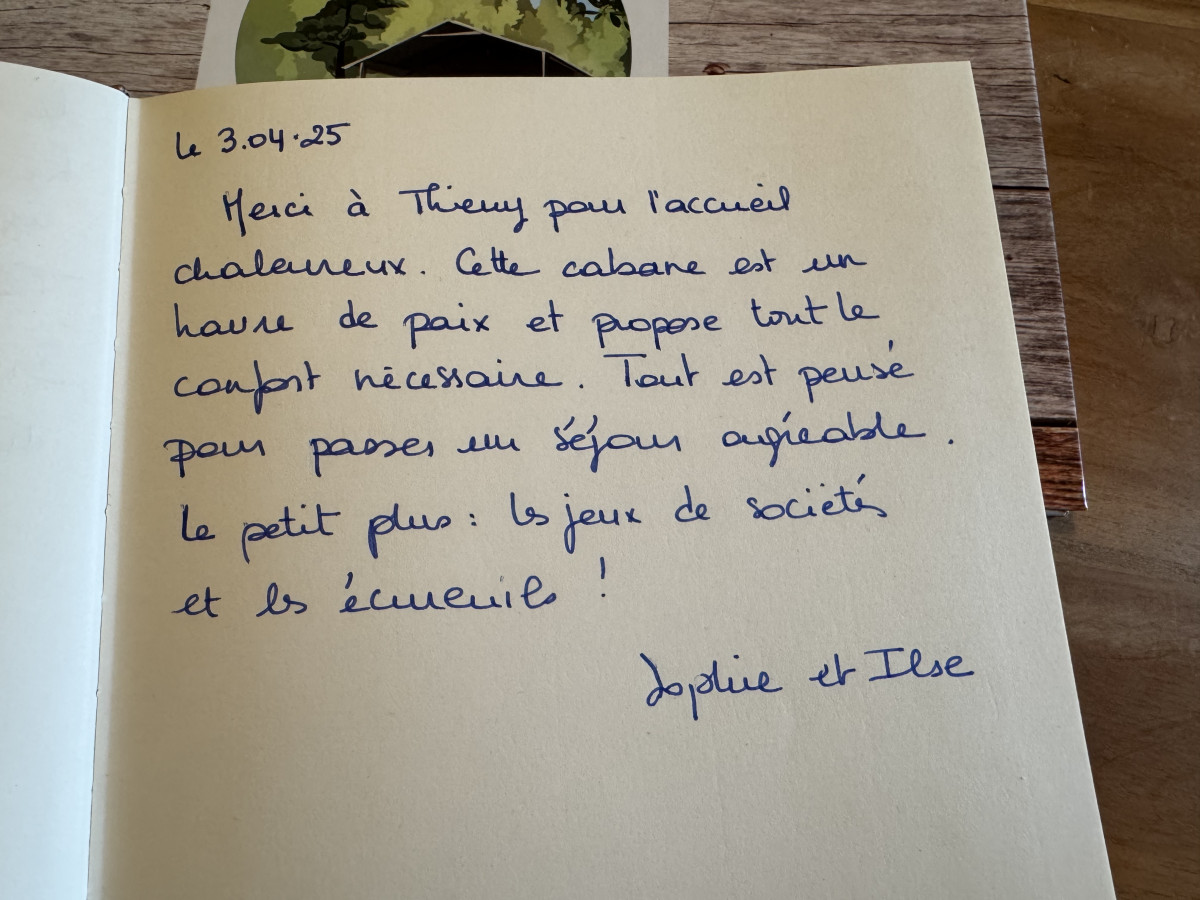 le 3.04.25
Merci à Thierry pour l'accueil
chaleureux. Cette cabane est un
havre de paix et propose tout le
confort nécessaire. Tout est pensé
pour passer un séjour agréable.
Le petit plus : les jeux de sociétés
et les écureuils !
Sophie et Ilse